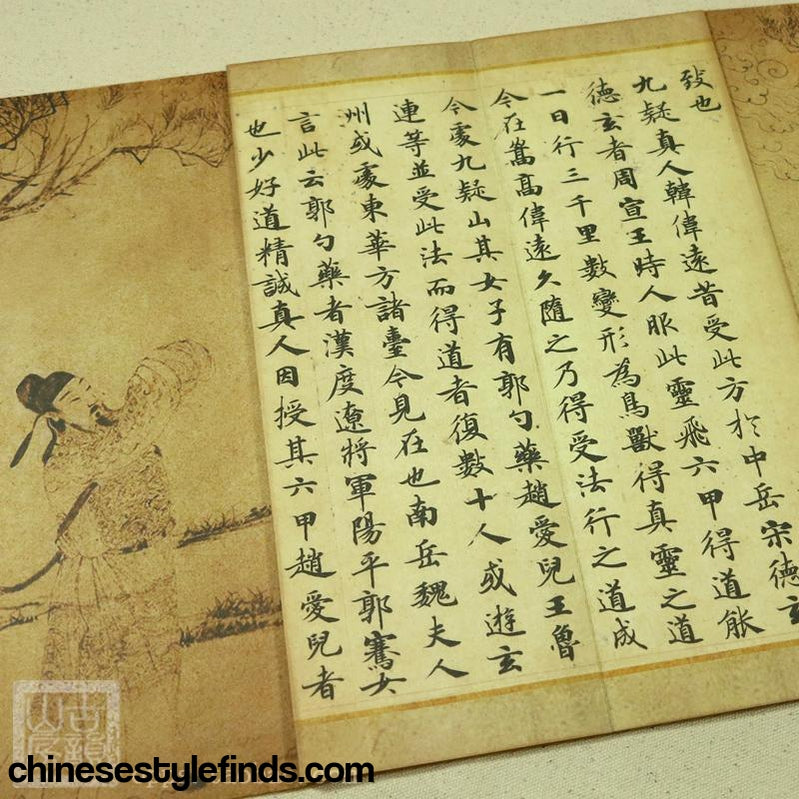 致也
九疑真人韓偉遠昔受此方於中岳宋德玄
德玄者周宣王時人服此靈飛六甲得道能
一日行三千里數變形為鳥獸得真靈之道
今在嵩高偉遠久隨之乃得受法行之道成
今處九疑山其女子有郭勺藥趙愛兒王魯
連等並受此法而得道者復數十人或遊玄
州或處東華方諸臺今見在也南岳魏夫人
言此云郭勺藥者漢度遼將軍陽平郭騫女
也少好道精誠真人因授其六甲趙愛兒者
chinesestylefinds.com